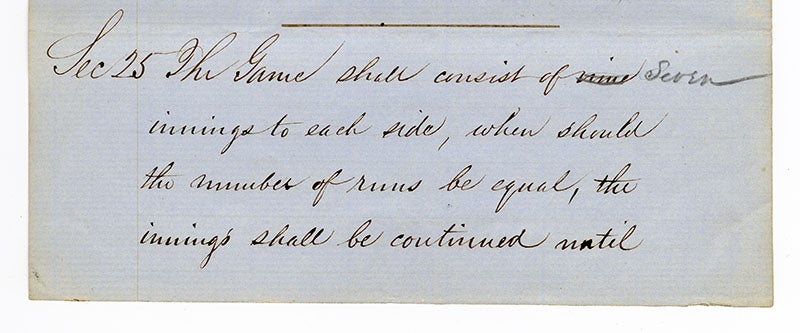 Sec 25 The Game shall consist of nine Seven
innings to each side, when should
the number of runs be equal, the
innings shall be continued until